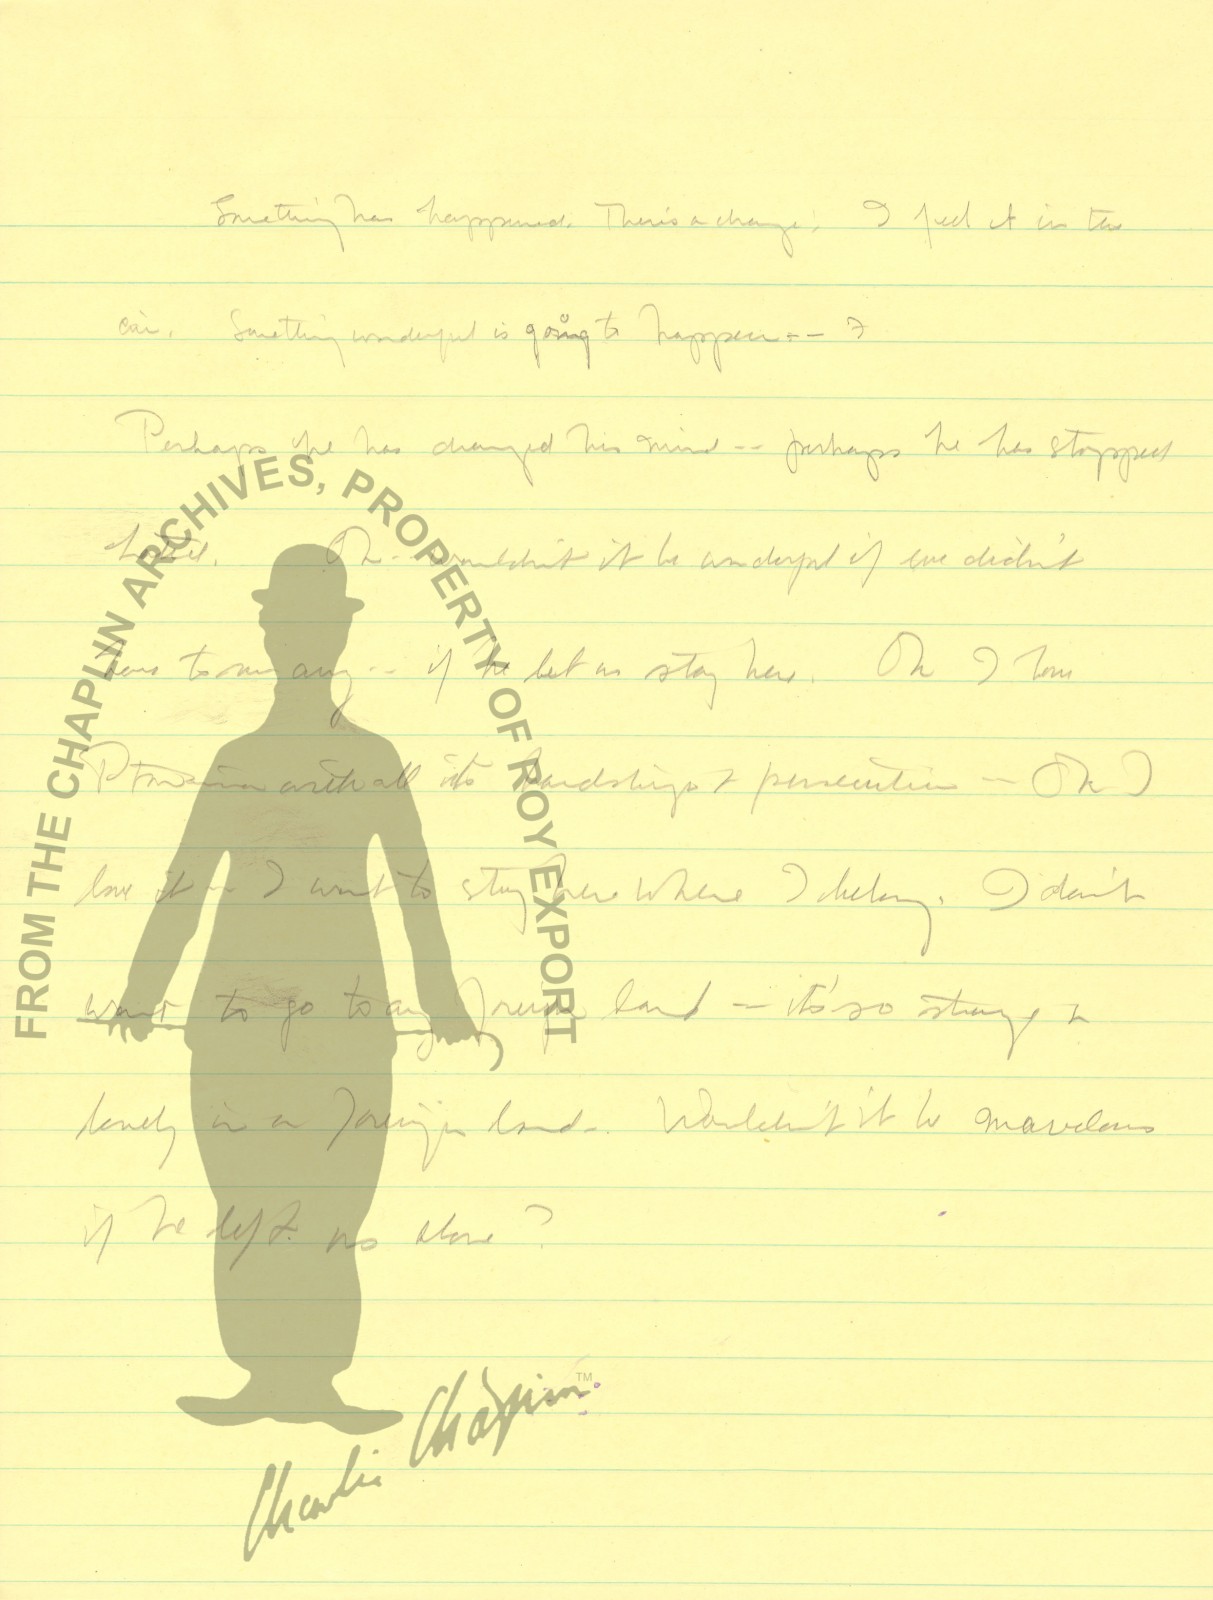 Something has happened. There's a change. I feel it in the
air. Something wonderful is going to happen --
Perhaps he has changed his mind -- perhaps he has stopped
Oh - wouldn't it be wonderful if we didn't
have to run away -- if he let us stay here. Oh I love
with all its hardships & persecution -- Oh I
love it -- I want to stay here where I belong. I don't
want to go to any foreign land -- it's so strange &
lonely in a foreign land. Wouldn't it be marvelous
if he left us alone?
FROM THE CHAPLIN ARCHIVES, PROPERTY OF ROY EXPORT
Charlie Chaplin TM